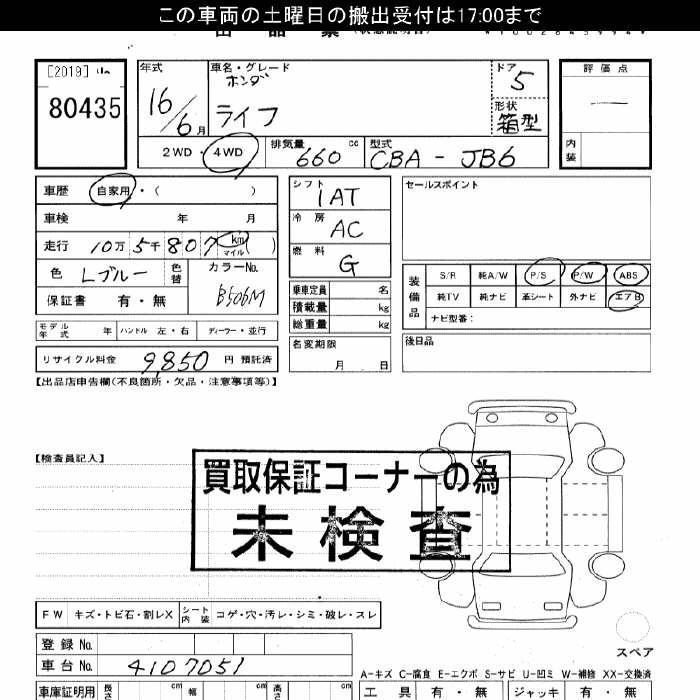 この車両の土曜日の搬出受付は17:00まで
[2019]
80435
年式
車名・グレード
ドア
評価点
ホンダ
5
16/6月
ライフ
形状
箱型
内装
2WD・4WD
排気量 660 cc
型式 CBA-JB6
車歴 自家用・( )
シフト 1AT
セールスポイント
車検 年 月
冷房 AC
走行 10万5千807 km マイル ( )
燃料 G
色 Lブルー 色替
カラーNo. B506M
保証書 有・無
乗車定員 名
積載量 kg
総重量 kg
装備品
S/R 純A/W P/S P/W ABS
純TV 純ナビ 革シート 外ナビ エアB
ナビ型番:
モデル年式 年 ハンドル 左・右 ディーラー・並行
名変期限 月 日
後日品
リサイクル料金 9,850 円 預託済
【出品店申告欄(不良箇所・欠品・注意事項等)】
【検査員記入】
買取保証コーナーの為
未検査
FW キズ・トビ石・割レX シート内装 コゲ・穴・汚レ・シミ・破レ・スレ
スペア
登録No.
車台No. 4107051
A-キズ C-腐食 E-エクボ S-サビ U-凹ミ W-補修 XX-交換済
車庫証明用 長さ cm 幅 cm 高さ cm
工具 有・無 ジャッキ 有・無